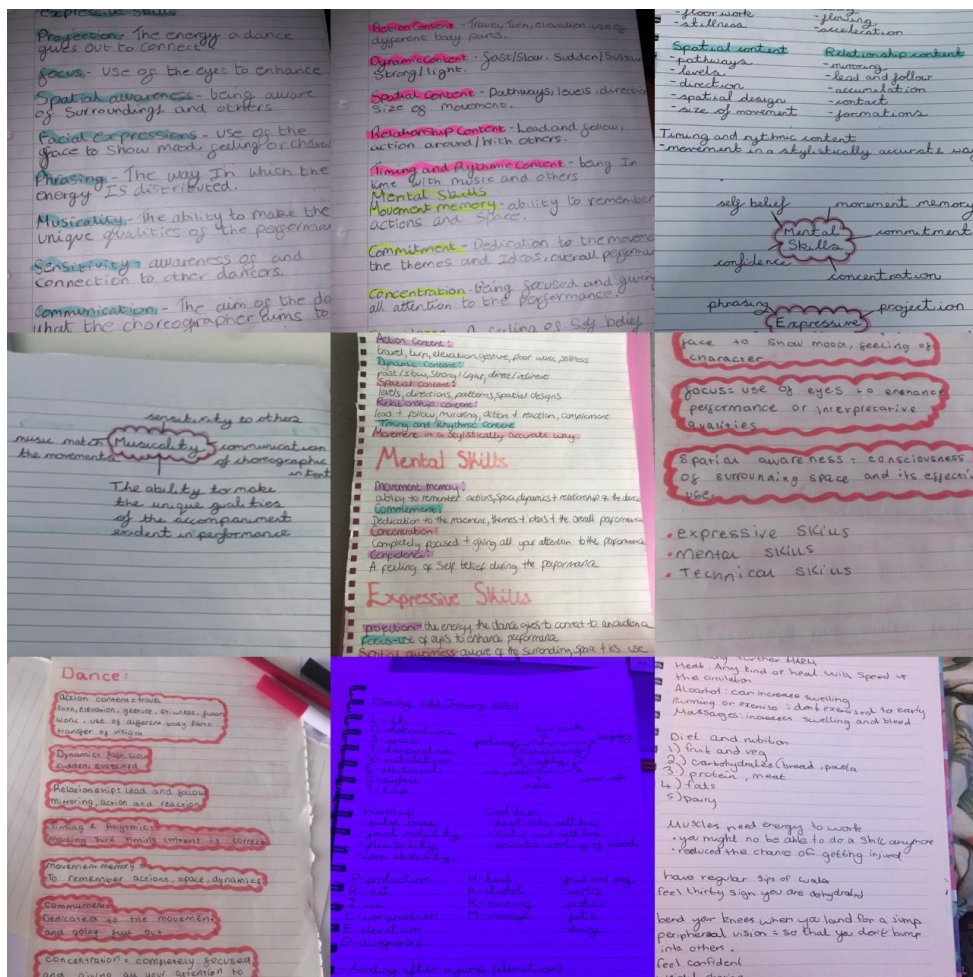 Expressive Skills
Projection - The energy a dance
gives out to connect
focus - use of the eyes to enhance
Spatial awareness - being aware
of surroundings and others
Facial expressions - use of the
face to show mood feeling or
Phrasing - The way In which the
energy Is distributed.
Musicality - The ability to make the
unique qualities of the
Sensitivity - awareness of and
connection to other dancers.
Communication - The aim of the
what the choreographer aims to
Action Content - Travel, Turn, elevation, use of
different body parts.
Dynamic Content - fast/slow, sudden/
Strong/light.
Spatial Content - pathways, levels,
size of movement.
Relationship Content - Lead and follow,
action around/with others.
Timing and Rythmic Content - being In
time with music and others
Mental Skills
Movement memory - ability to remember
actions and space.
Commitment - Dedication to the
the themes and Ideas, overall
Concentration - Being focused and
all attention to the performance.
A feeling of Self belief
- floor work
- stillness
- flowing
- acceleration
Spatial content
- pathways
- levels
- direction
- spatial design
- size of movement
Relationship content
- mirroring
- lead and follow
- accumulation
- contact
- formations
Timing and rythmic content
- movement in a stylistically accurate
self belief
movement memory
Mental
Skills
commitment
confidence
concentration
phrasing
projection
Expressive
sensitivity to others
music match
the movements
Musicality
communication
of choreographic
intent
The ability to make
the unique qualities
of the accompaniment
evident in performance
Action Content:
travel, turn, elevation, gesture, floor work, stillness
Dynamic Content:
fast/slow, Strong/Light, direct/indirect
Spatial Content:
levels, directions, patterns, spatial designs
Relationship content:
lead + follow, mirroring, action + reaction, complement
Timing and Rhythmic Content
Movement in a stylistically accurate way
Mental Skills
Movement memory:
ability to remember actions, space, dynamics + relationship of the dance
Commitment:
Dedication to the movement, themes + ideas + the overall performance
Concentration:
Completely focused + giving all your attention to the performance
Confidence:
A feeling of self belief during the performance
Expressive Skills
projection - the energy the dance gives to connect to
focus - use of eyes to enhance performance
Spatial awareness - aware of the surrounding space + its use
face to show mood, feeling of
character
focus = use of eyes to enhance
performance or interpretative
qualities
Spatial awareness = consciousness
of surrounding space and its
use.
• expressive skills
• mental skills
• Technical skills
Dance:
action content = travel
turn, elevation, gesture, stillness, floor
work, use of different body parts
transfer of weight
Dynamics fast slow
sudden sustained
Relationships lead and follow
mirroring, action and reaction
Timing & Rhythmic =
making sure timing content is correct
movement memory =
To remember actions, space, dynamics
commitment =
Dedicated to the movement
and going full out
concentration = completely focused
and giving all your attention to
January 2020
Warm up
- pulse raise
- joint mobility
- flexibility
Cool down
P - protection
R - rest
I - ice
C - compression
E - elevation
D - diagnosis
H - heat
A - alcohol
R - running
M - massage
- fruit and veg
- carbs
- protein
- fats
- dairy
further HARM
Heat: Any kind of heat will speed
the circulation
Alcohol: can increase swelling
Running or exercise: don't exercised to early
Massages: increases swelling and bleed
Diet and
1.) fruit and veg
2.) carbohydrates (bread, pasta
3.) protein, meat
4.) fats
5.) dairy
Muscles need energy to work
- you might no be able to do a skill anymore
- reduced the chance of getting injured
have regular sips of
feel thirsty sign you are dehydrated
bend your knees when you land for a jump
peripheral vision = so that you don't bump
into others.
feel confident